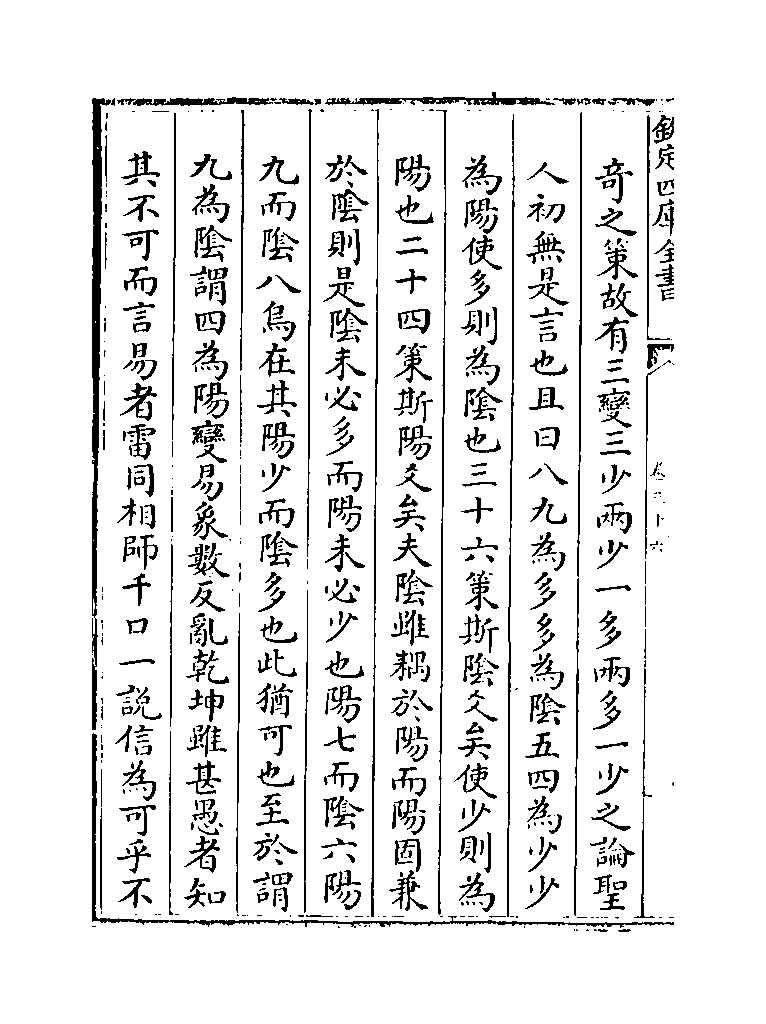 欽定四庫全書
卷三十六
奇之策故有三變三少兩少一多兩多一少之論聖
人初無是言也且曰八九為多多為陰五四為少少
為陽使多則為陰也三十六策斯陰爻矣使少則為
陽也二十四策斯陽爻矣夫陰雖耦於陽而陽固兼
於陰則是陰未必多而陽未必少也陽七而陰六陽
九而陰八烏在其陽少而陰多也此猶可也至於謂
九為陰謂四為陽變易象數反亂乾坤雖甚愚者知
其不可而言易者雷同相師千口一說信為可乎不